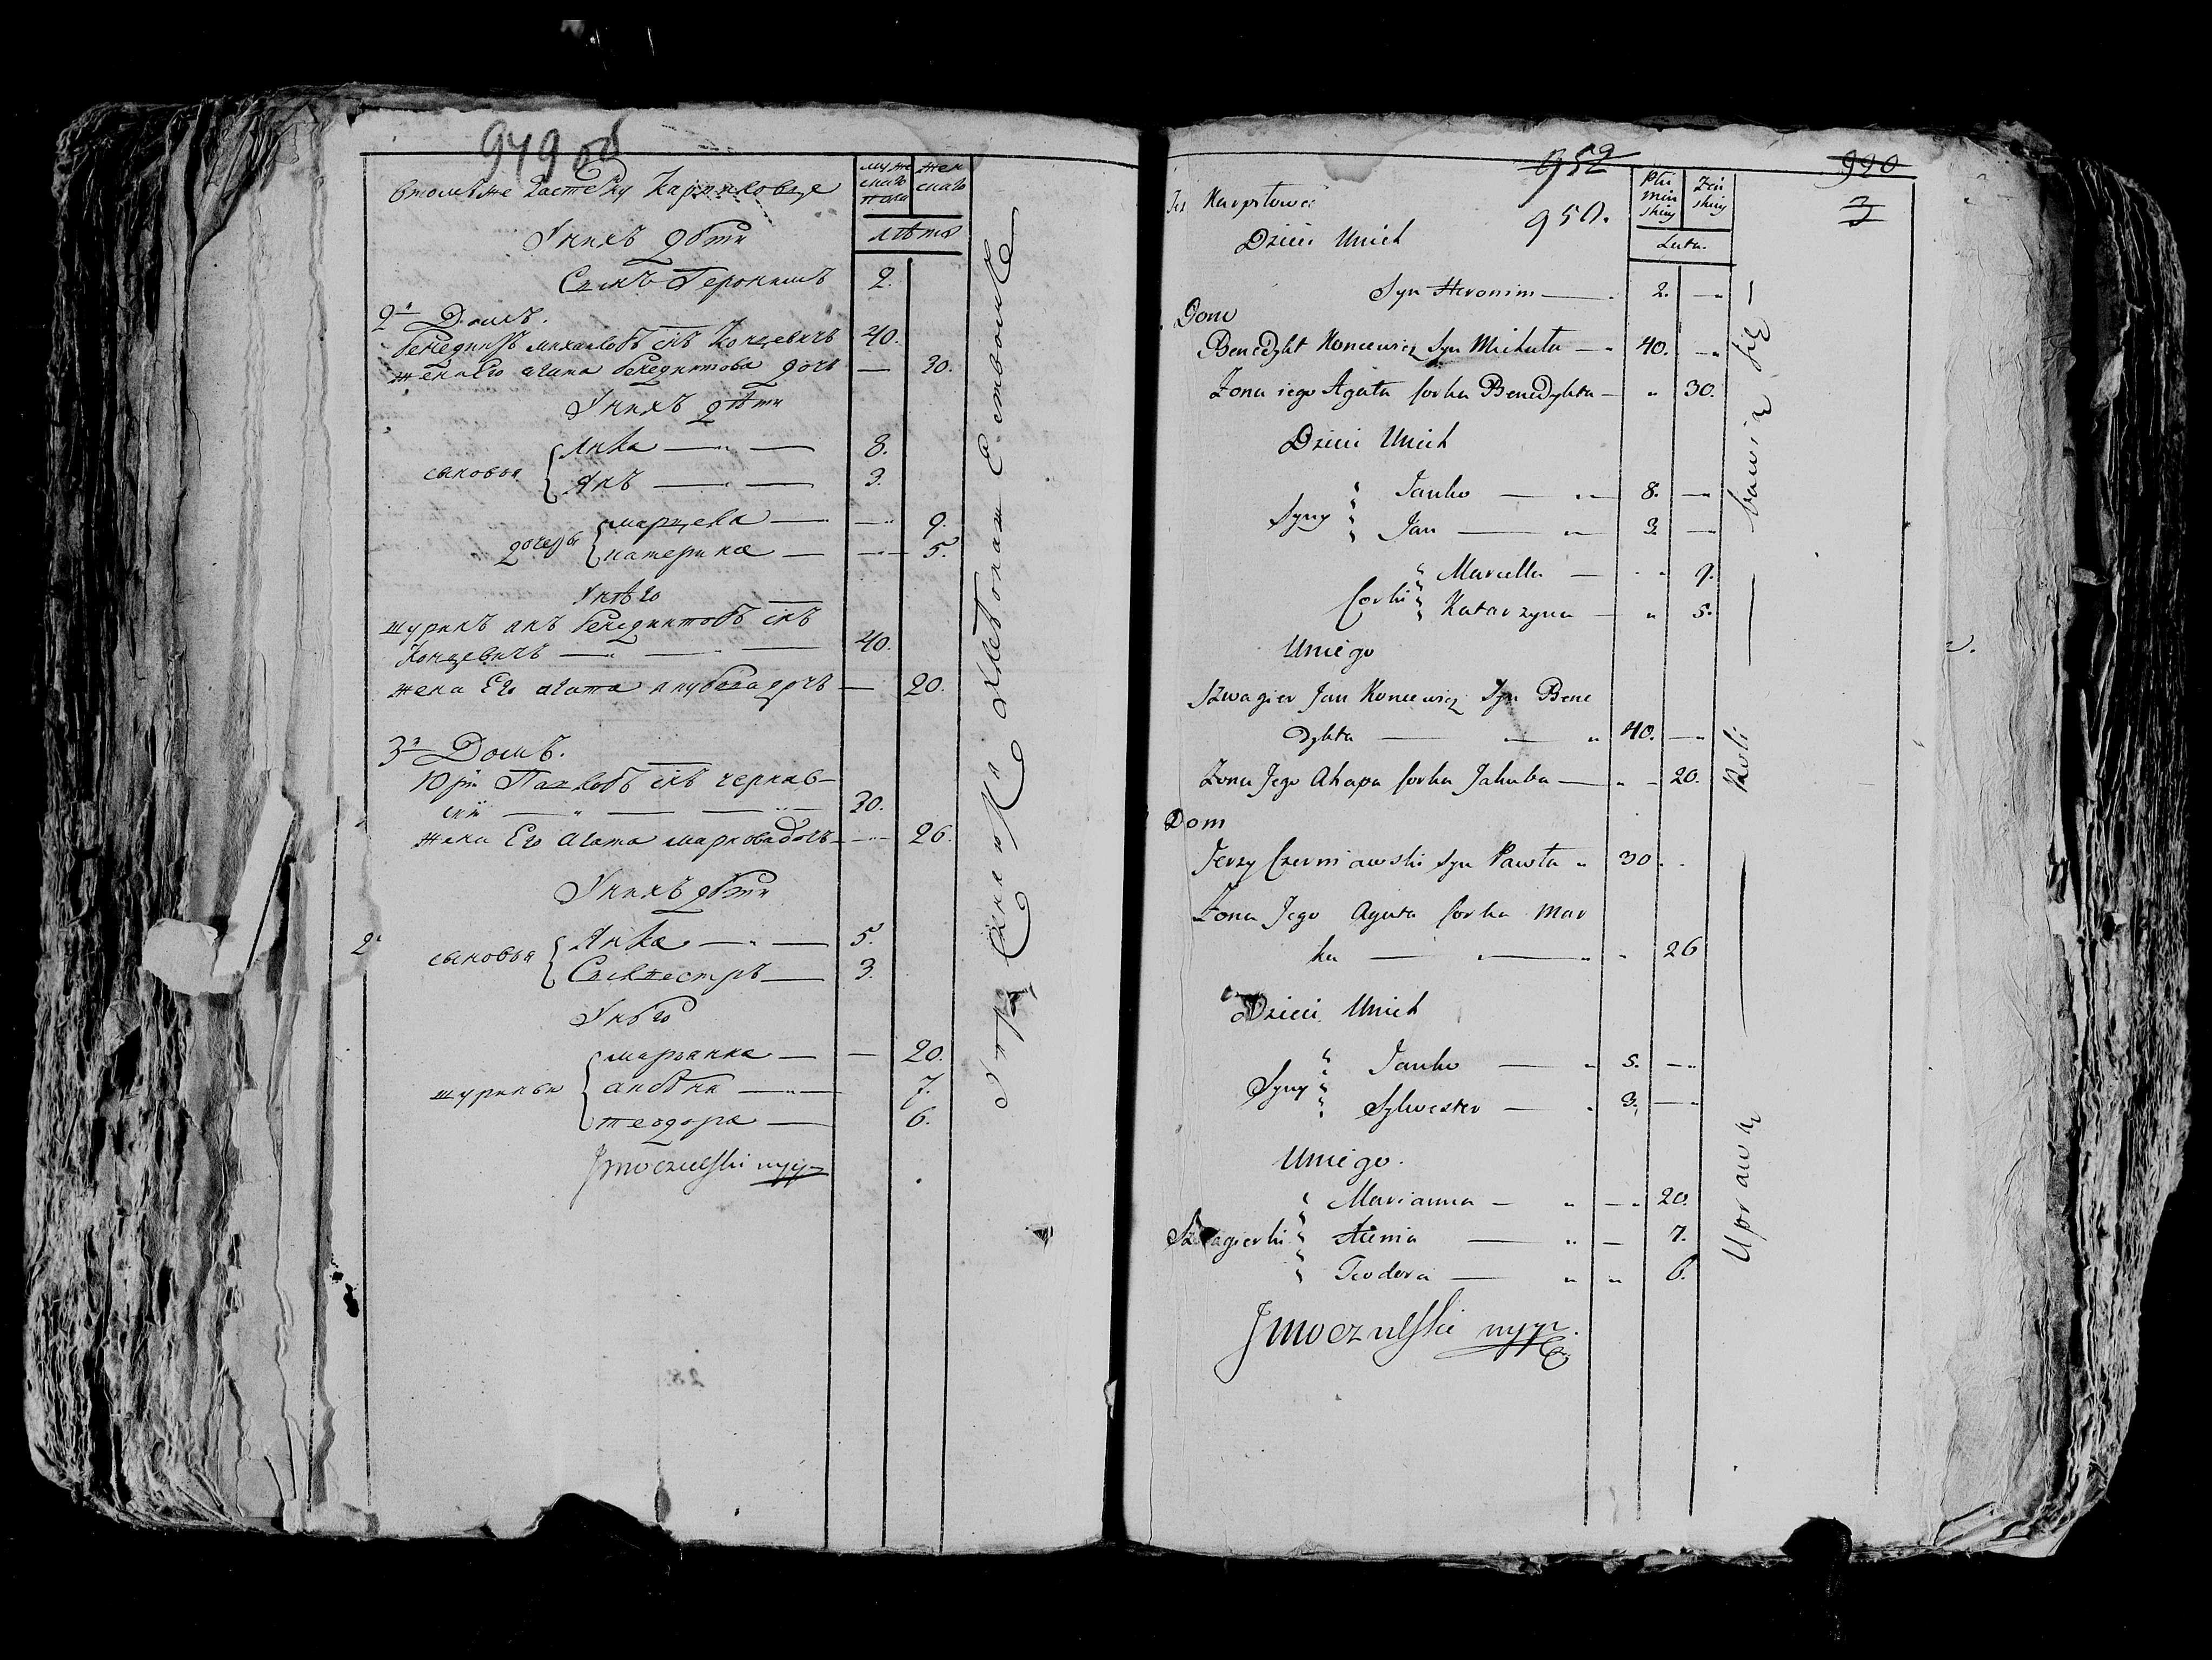 949 об
втомъже застенку Карпиковце
мужескаго пола
женскаго
лѣта
У нихъ дѣти
Сынъ Геронимъ 2.
2й Домъ.
Бенедиктъ Михаловъ снъ Концевичъ 40.
жена Его агата Бенедиктова дочь — 30.
У нихъ дѣти
сыновья
Янко — 8.
Янъ — 3.
дочери
марцела — 9.
катерина — 5.
У него
шуринъ янъ Бенедиктовъ снъ
Концевичъ — 40.
жена Его агата якубова дочь — 20.
3й Домъ.
Юри Павловъ снъ черняв-
скій — 30.
жена Его агата маркова дочь — 26.
У нихъ дѣти
сыновья
Янко — 5.
Сильвестръ — 3.
У него
шуринки
марьянна — 20.
7.
теодора — 6.
Jmoczulski mpp
952
950.
990
3
Dzieci Unich
Lata.
Syn Heronim — 2. —
Dom
Benedykt Koncewicz Syn Michała — 40. —
Żona iego Agata Corka Benedykta — 30.
Dzieci Unich
Syny
Janko — 8. —
Jan — 3. —
Corki
Marcella — 9.
Katarzyna — 5.
Uniego
Szwagier Jan Koncewicz Syn Bene
dykta — 40. —
Żona Jego Ahapa Corka Jakuba — 20.
Dom
Jerzy Czerniawski Syn Pawła 30.
Żona Jego Agata Corka Mar
ka — 26
Dzieci Unich
Syny
Janko — 5. —
Sylwester — 3. —
Uniego.
Szwagierki
Marianna — 20.
7.
Teodora — 6.
Jmoczulski mpp.
Uprawą — Roli — bawią się —